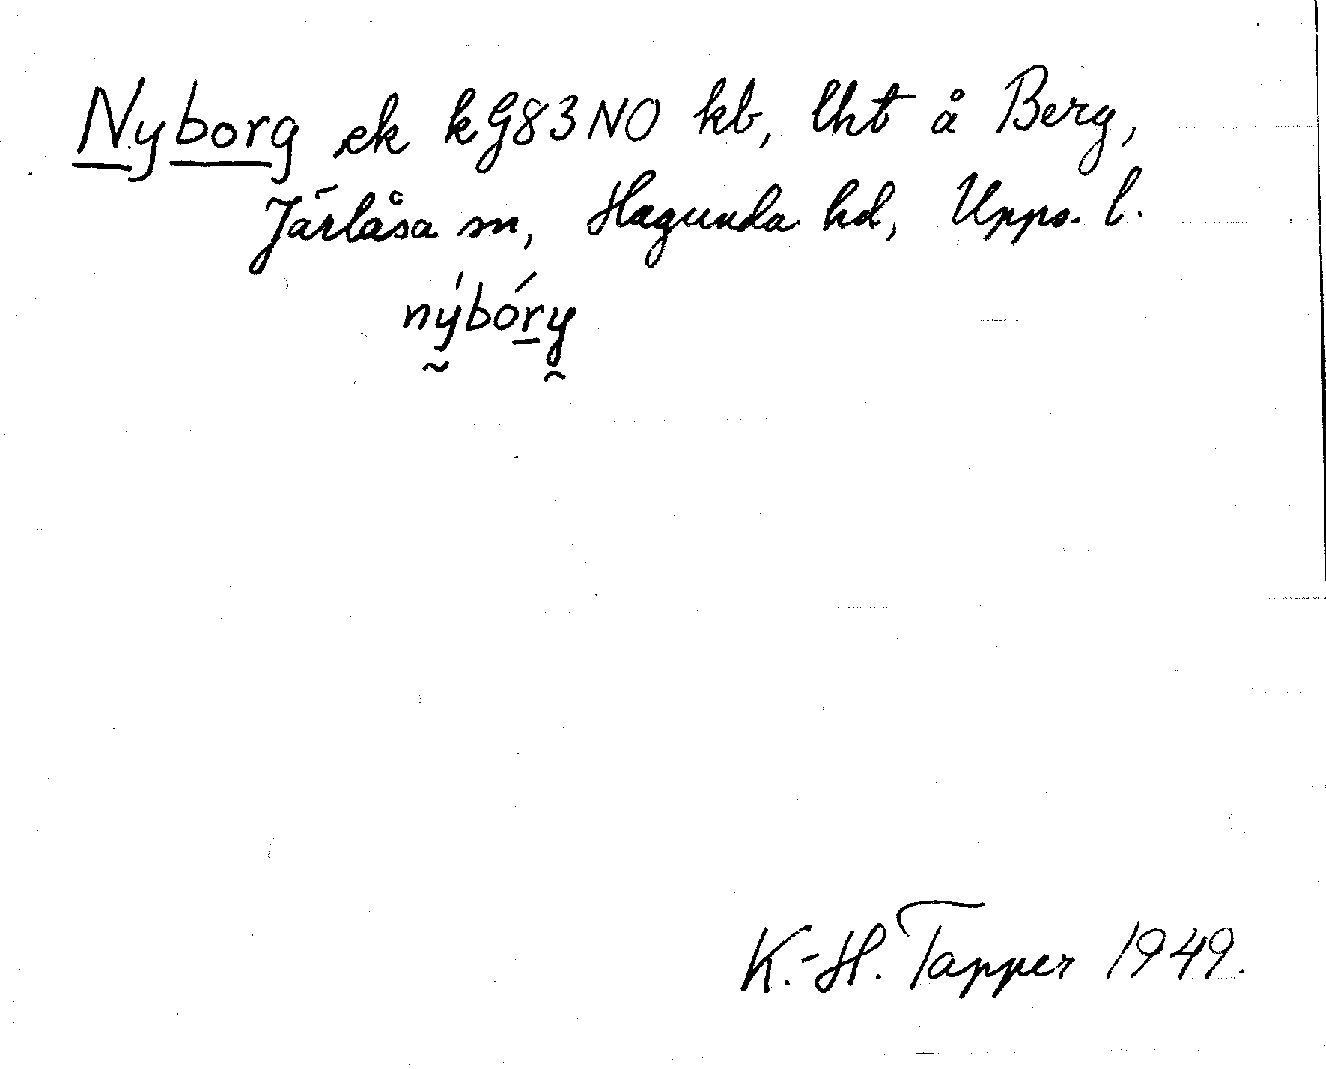 Nyborg ek kG83NO kb, lht å Berg,
Järlåsa sn, Hagunda hd, Upps. l.
nýbóry
K.-H. Tapper 1949.